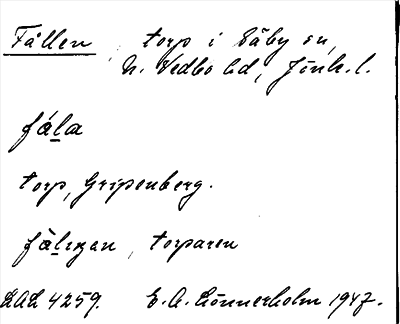 Fållen, torp i Säby sn,
N. Vedbo hd, Jönk. l.
fåla
torp, Gripenberg.
torparen
LAL 4259. E. A. Lönnerholm 1947.